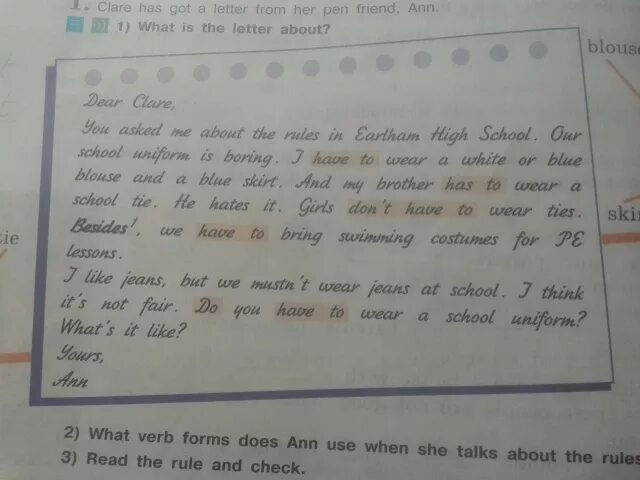 1. Clare has got a letter from her pen friend, Ann.
1) What is the letter about?
blouse
Dear Clare,
You asked me about the rules in Eartham High School. Our
school uniform is boring. I have to wear a white or blue
blouse and a blue skirt. And my brother has to wear a
school tie. He hates it. Girls don't have to wear ties.
Besides¹, we have to bring swimming costumes for PE
lessons.
I like jeans, but we mustn't wear jeans at school. I think
it's not fair. Do you have to wear a school uniform?
What's it like?
Yours,
Ann
tie
2) What verb forms does Ann use when she talks about the rules
3) Read the rule and check.